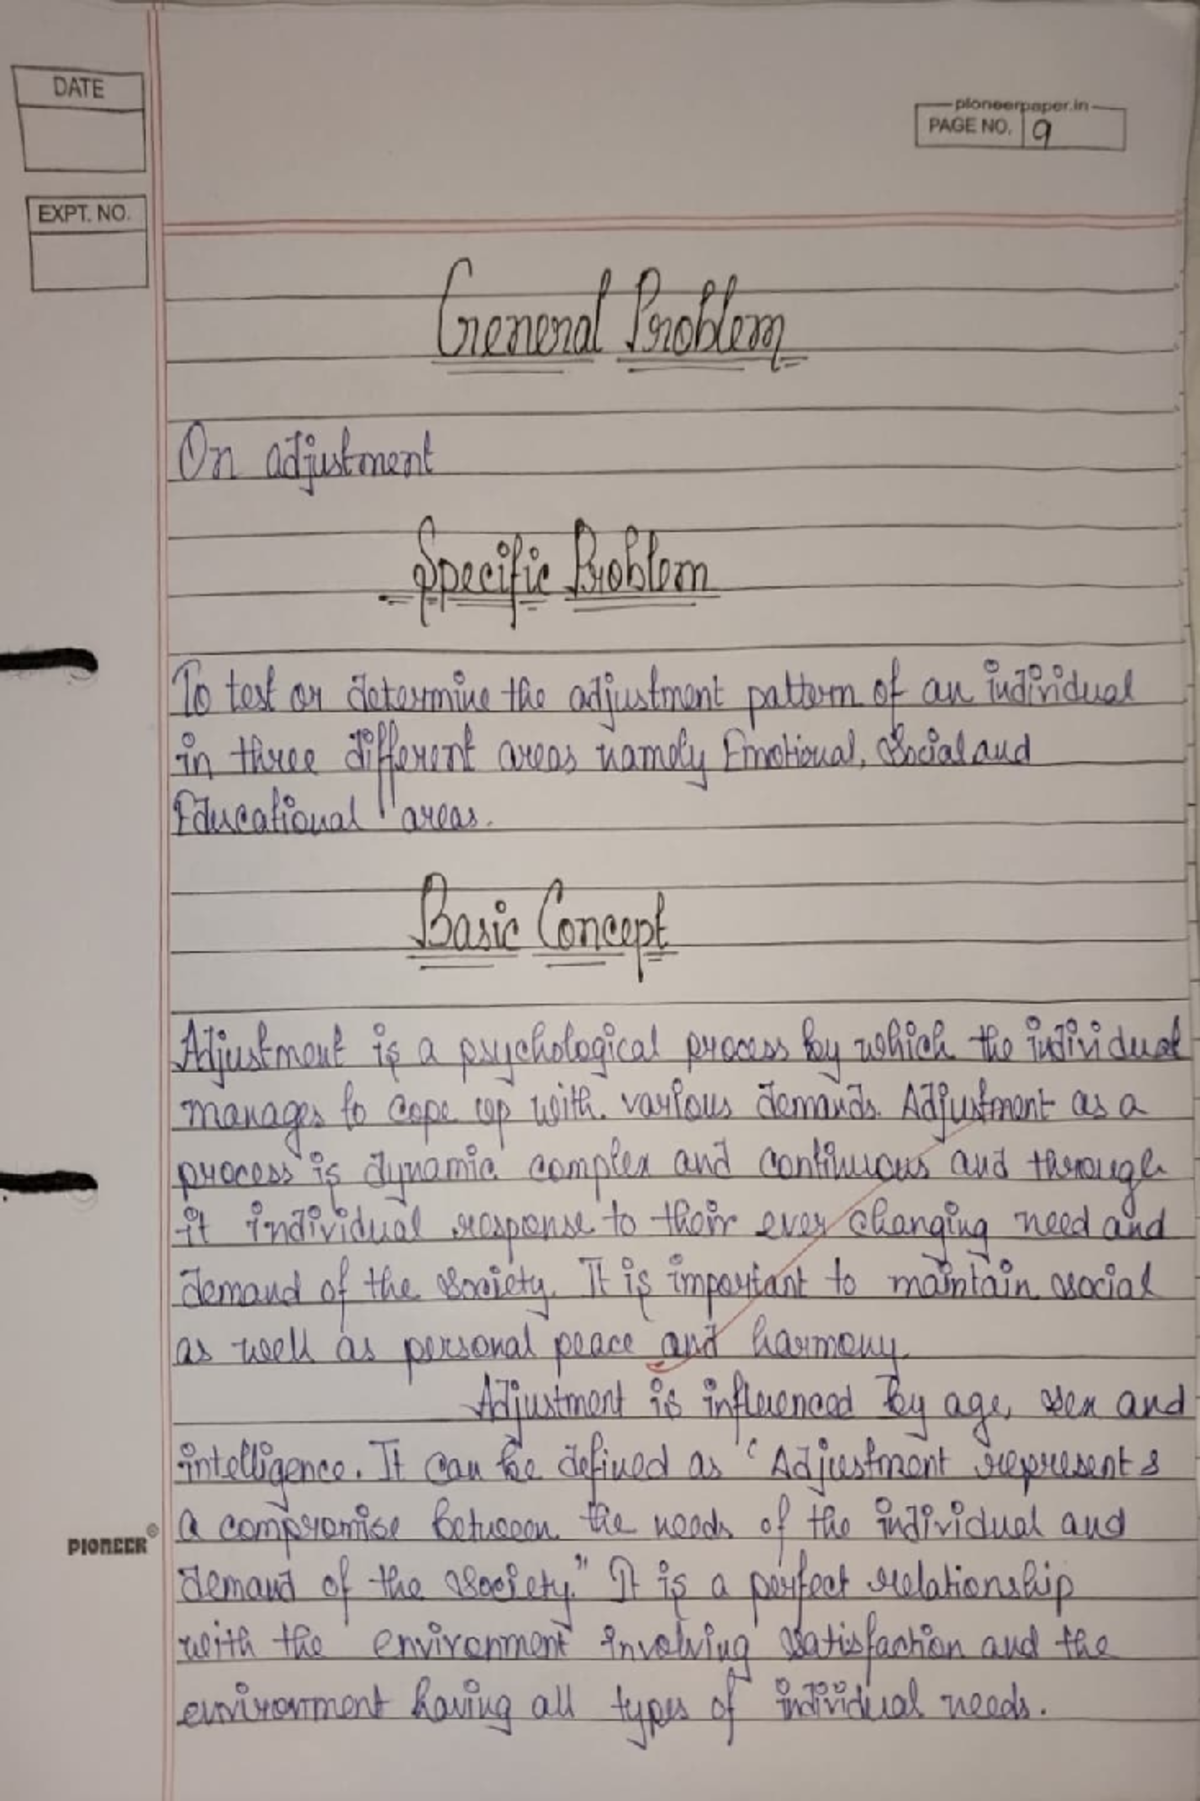 DATE
pioneerpaper.in
PAGE NO. 9
EXPT. NO.
General Problem
On adjustment
Specific Problem
To test or determine the adjustment pattern of an individual
in three different areas namely Emotional, Social and
Educational areas.
Basic Concept
Adjustment is a psychological process by which the individual
manages to cope up with. various demands. Adjustment as a
process is dynamic complex and continuous and through
it individual response to their ever changing need and
demand of the society. It is important to maintain social
as well as personal peace and harmony.
Adjustment is influenced by age, sex and
intelligence. It can be defined as "Adjustment represents
a compromise between the needs of the individual and
demand of the society." It is a perfect relationship
with the environment involving satisfaction and the
environment having all types of individual needs.
PIONEER®